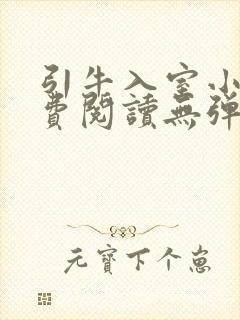 引牛入室小
費閱讀無彈
元寶下个崽